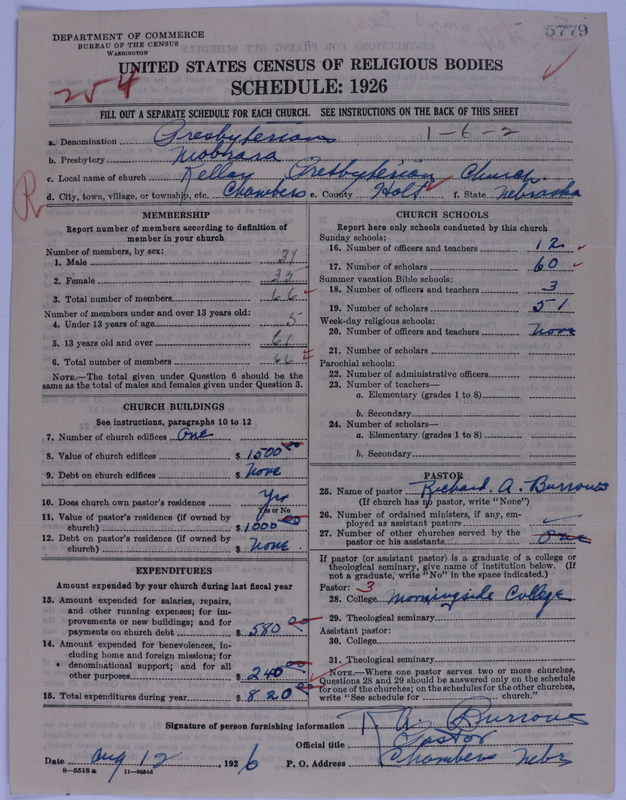 5779
DEPARTMENT OF COMMERCE
BUREAU OF THE CENSUS
WASHINGTON
UNITED STATES CENSUS OF RELIGIOUS BODIES
SCHEDULE: 1926
204
FILL OUT A SEPARATE SCHEDULE FOR EACH CHURCH. SEE INSTRUCTIONS ON THE BACK OF THIS SHEET
1-6-2
a. Denomination Presbyterian
b. Presbytery Niobrara
c. Local name of church Kelley Presbyterian Church.
d. City, town, village, or township, etc. Chambers e. County Holt f. State Nebraska
R
MEMBERSHIP
Report number of members according to definition of
member in your church
Number of members, by sex:
1. Male 31
2. Female 35
3. Total number of members 66
Number of members under and over 13 years old:
4. Under 13 years of age 5
5. 13 years old and over 61
6. Total number of members 66
NOTE.—The total given under Question 6 should be
same as the total of males and females given under Question 3.
CHURCH BUILDINGS
See instructions, paragraphs 10 to 12
7. Number of church edifices One
8. Value of church edifices $ 1500 00
9. Debt on church edifices $ None
10. Does church own pastor's residence Yes
Yes or No
11. Value of pastor's residence (if owned by
church) $ 1000 00
12. Debt on pastor's residence (if owned by
church) $ None
EXPENDITURES
Amount expended by your church during last fiscal year
13. Amount expended for salaries, repairs,
and other running expenses; for im-
provements or new buildings; and for
payments on church debt $ 580 00
14. Amount expended for benevolences, in-
cluding home and foreign missions; for
denominational support; and for all
other purposes $ 240 00
15. Total expenditures during year $ 820 00
CHURCH SCHOOLS
Report here only schools conducted by this church
Sunday schools:
16. Number of officers and teachers 12
17. Number of scholars 60
Summer vacation Bible schools:
18. Number of officers and teachers 3
19. Number of scholars 51
Week-day religious schools:
20. Number of officers and teachers None
21. Number of scholars
Parochial schools:
22. Number of administrative officers
23. Number of teachers—
a. Elementary (grades 1 to 8)
b. Secondary
24. Number of scholars—
a. Elementary (grades 1 to 8)
b. Secondary
PASTOR
25. Name of pastor Richard. A. Burrows
(If church has no pastor, write "None")
26. Number of ordained ministers, if any, em-
ployed as assistant pastors
27. Number of other churches served by the
pastor or his assistants One
If pastor (or assistant pastor) is a graduate of a college or
theological seminary, give name of institution below. (If
not a graduate, write "No" in the space indicated.)
Pastor: 3
28. College Morningside College
29. Theological seminary
Assistant pastor:
30. College
31. Theological seminary
NOTE.—Where one pastor serves two or more churches,
Questions 28 and 29 should be answered only on the schedule
for one of the churches; on the schedules for the other churches,
write "See schedule for church."
Signature of person furnishing information R A. Burrows
Official title Pastor
Date Aug 12, 1926 P. O. Address Chambers Nebr
8-5518 a